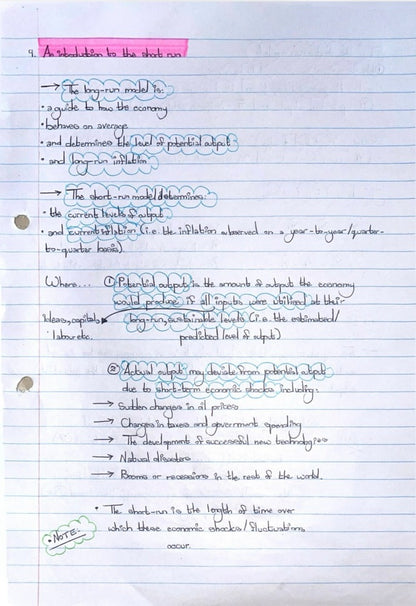 9. An introduction to the short run
→ The long-run model is:
• a guide to how the economy
• behaves on average
• and determines the level of potential output
• and long-run inflation
→ The short-run model determines:
• the current levels of output
• and current inflation (i.e. the inflation observed on a year-to-year/quarter-
to-quarter basis).
Where... ① Potential output is the amount of output the economy
would produce if all inputs were utilized at their
Ideas, capital, long-run, sustainable levels (i.e. the estimated/
labour etc. predicted level of output)
② Actual output may deviate from potential output
due to short-term economic shocks including:
→ Sudden changes in oil prices
→ Changes in taxes and government spending
→ The development of successful new technologies
→ Natural disasters
→ Booms or recessions in the rest of the world.
• The short-run is the length of time over
• NOTE: which these economic shocks/fluctuations
occur.